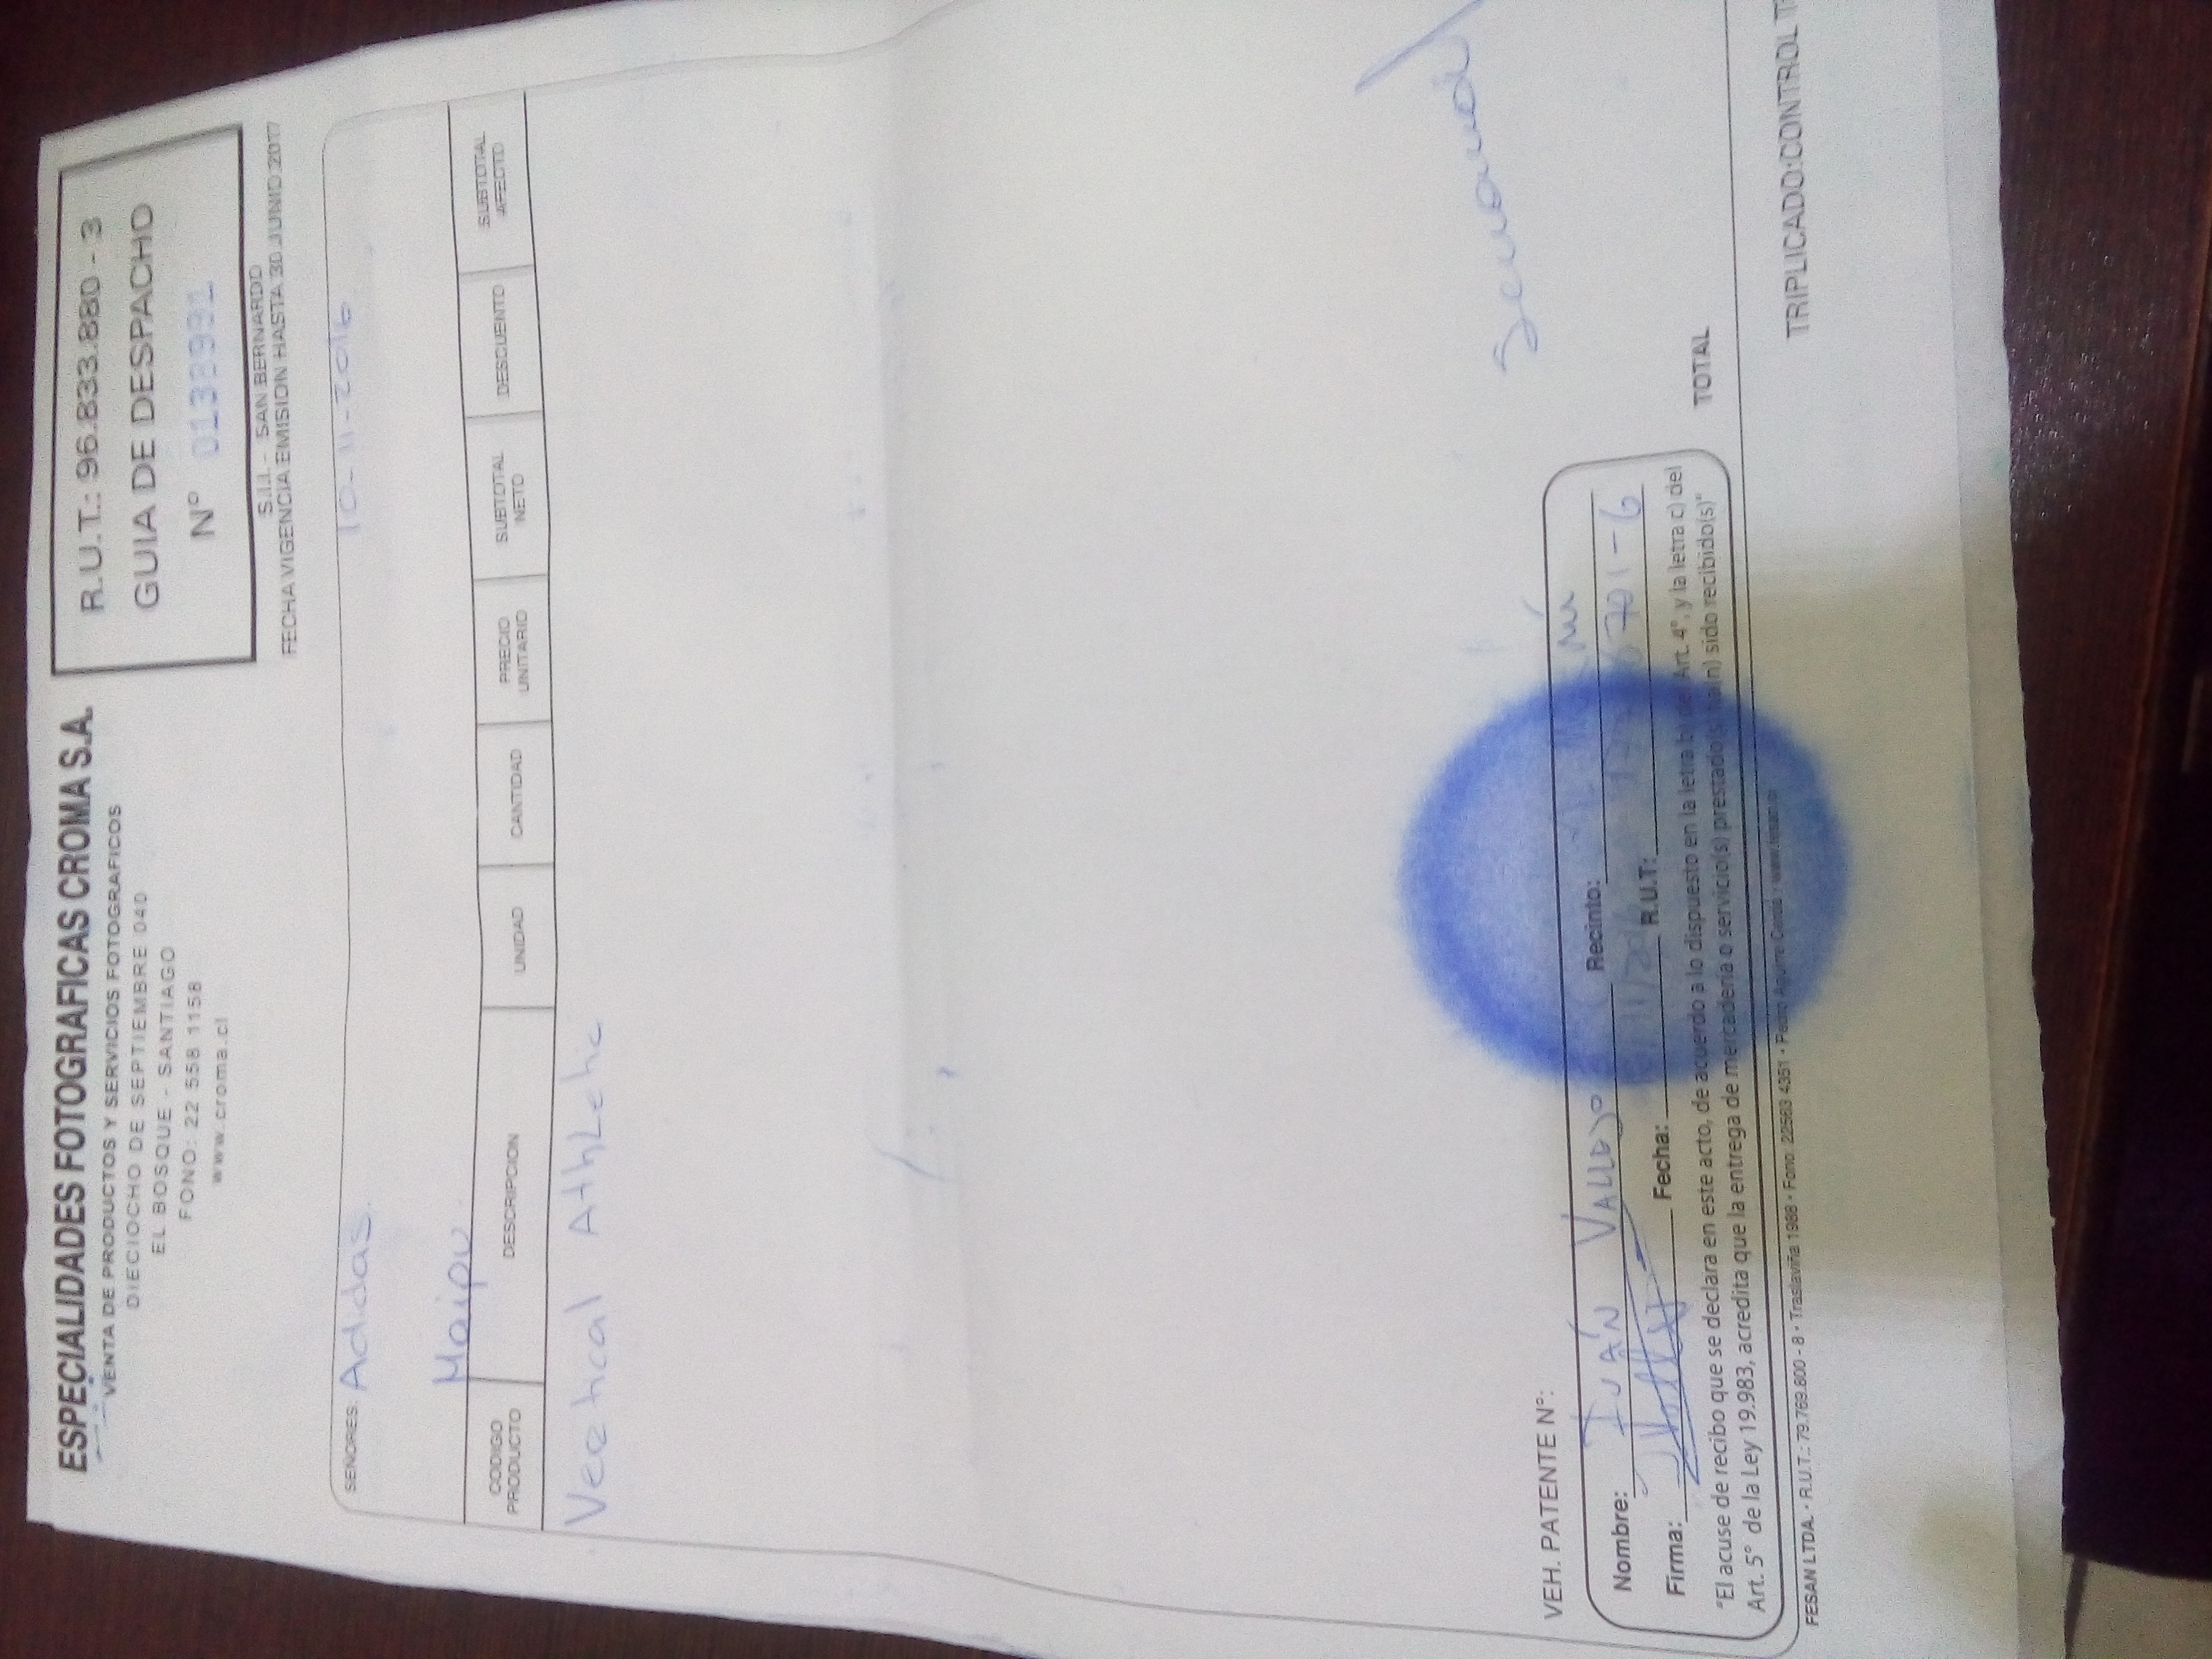 ESPECIALIDADES FOTOGRAFICAS CROMA S.A.
VENTA DE PRODUCTOS Y SERVICIOS FOTOGRAFICOS
DIECIOCHO DE SEPTIEMBRE 040
EL BOSQUE - SANTIAGO
FONO: 22 558 1158
www.croma.cl
R.U.T.: 96.833.880 - 3
GUIA DE DESPACHO
Nº 0138991
S.I.I. - SAN BERNARDO
FECHA VIGENCIA EMISION HASTA 30 JUNIO 2017
SEÑORES: Adidas. 10-11-2016
Maipu
CODIGO PRODUCTO DESCRIPCION UNIDAD CANTIDAD PRECIO UNITARIO SUBTOTAL NETO DESCUENTO SUBTOTAL AFECTO
Vertical Athletic
Semanal
VEH. PATENTE Nº:
Nombre: IVÁN VALLEJO Recinto:
Firma: Fecha: R.U.T: 701-6
"El acuse de recibo que se declara en este acto, de acuerdo a lo dispuesto en la letra b) del Art. 4°, y la letra c) del
Art. 5° de la Ley 19.983, acredita que la entrega de mercadería o servicio(s) prestado(s) ha(n) sido recibido(s)"
TOTAL
FESAN LTDA. • R.U.T.: 79.769.800 - 8 • Traslaviña 1988 • Fono: 22563 4351 • Pedro Aguirre Cerda • www.fesan.cl
TRIPLICADO:CONTROL